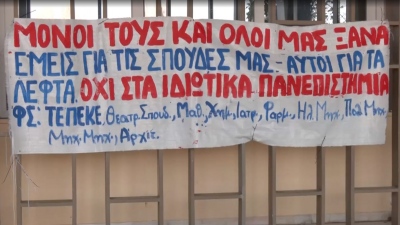 ΜΟΝΟΙ ΤΟΥΣ ΚΑΙ ΟΛΟΙ ΜΑΣ ΞΑΝΑ
ΕΜΕΙΣ ΓΙΑ ΤΙΣ ΣΠΟΥΔΕΣ ΜΑΣ-ΑΥΤΟΙ ΓΙΑ ΤΑ
ΛΕΦΤΑ. ΟΧΙ ΣΤΑ ΙΔΙΩΤΙΚΑ ΠΑΝΕΠΙΣΤΗΜΙΑ
ΦΣ: ΤΕΠΕΚΕ, Θεατρ. Σπουδ., Μαθ., Χημ., Ιατρ., Φαρμ., Ηλ. Μηχ., Πολ. Μηχ.
Μηχ. Μηχ., Αρχιτ.